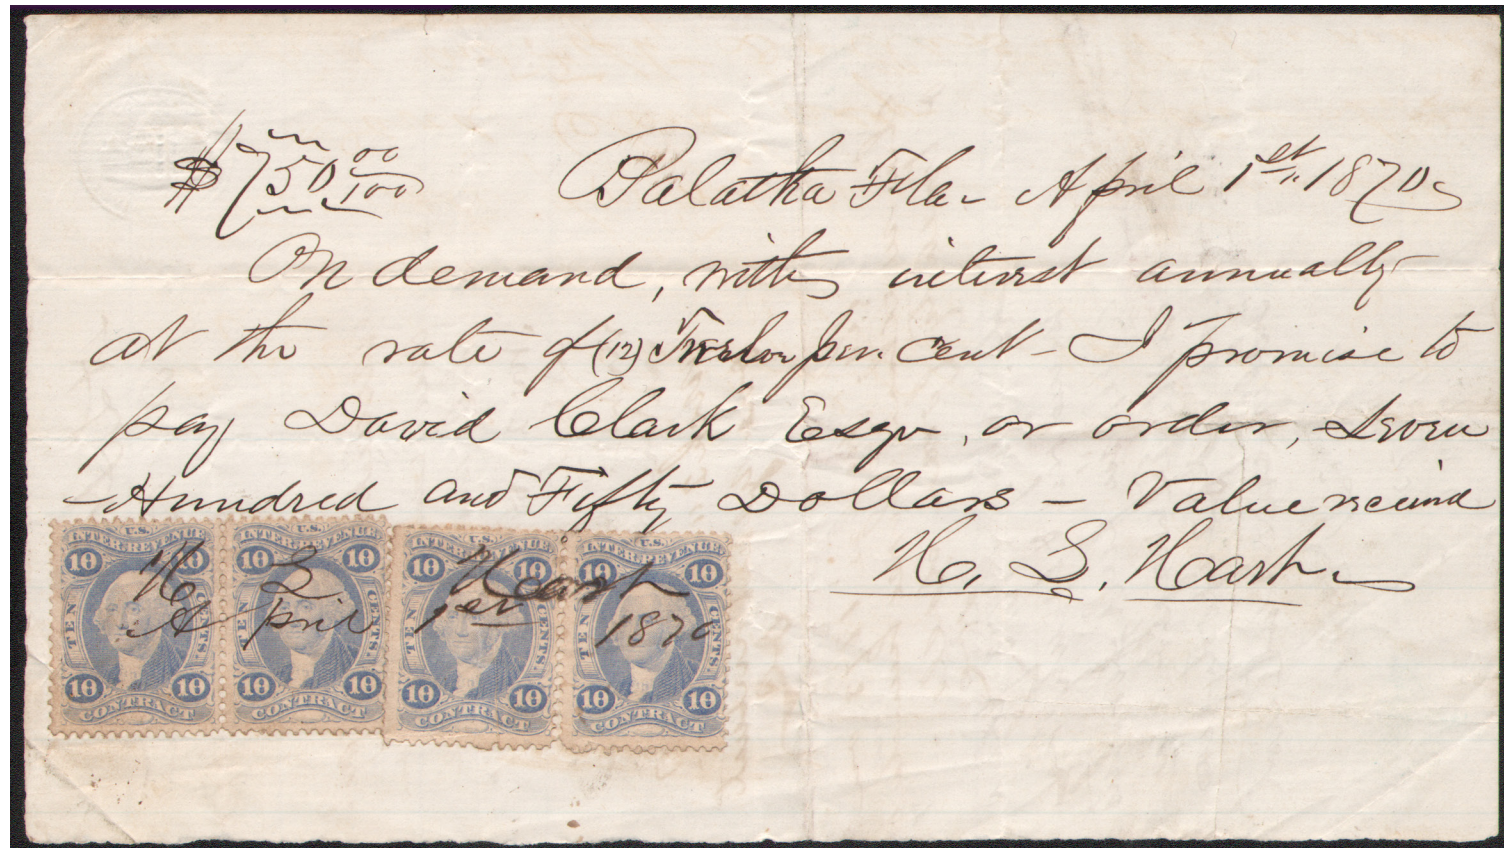 $750 00/100 Palatka Fla - April 1st 1870
On demand, with interest annually
at the rate of (12) Twelve per cent - I promise to
pay David Clark Esqr, or order, Seven
Hundred and Fifty Dollars - Value received
H. L. Hart
U.S. INTER. REVENUE 10 10 TEN CENTS. 10 10 CONTRACT
U.S. INTER. REVENUE 10 10 TEN CENTS. 10 10 CONTRACT
U.S. INTER. REVENUE 10 10 TEN CENTS. 10 10 CONTRACT
U.S. INTER. REVENUE 10 10 TEN CENTS. 10 10 CONTRACT
H L Hart
April 1st 1870